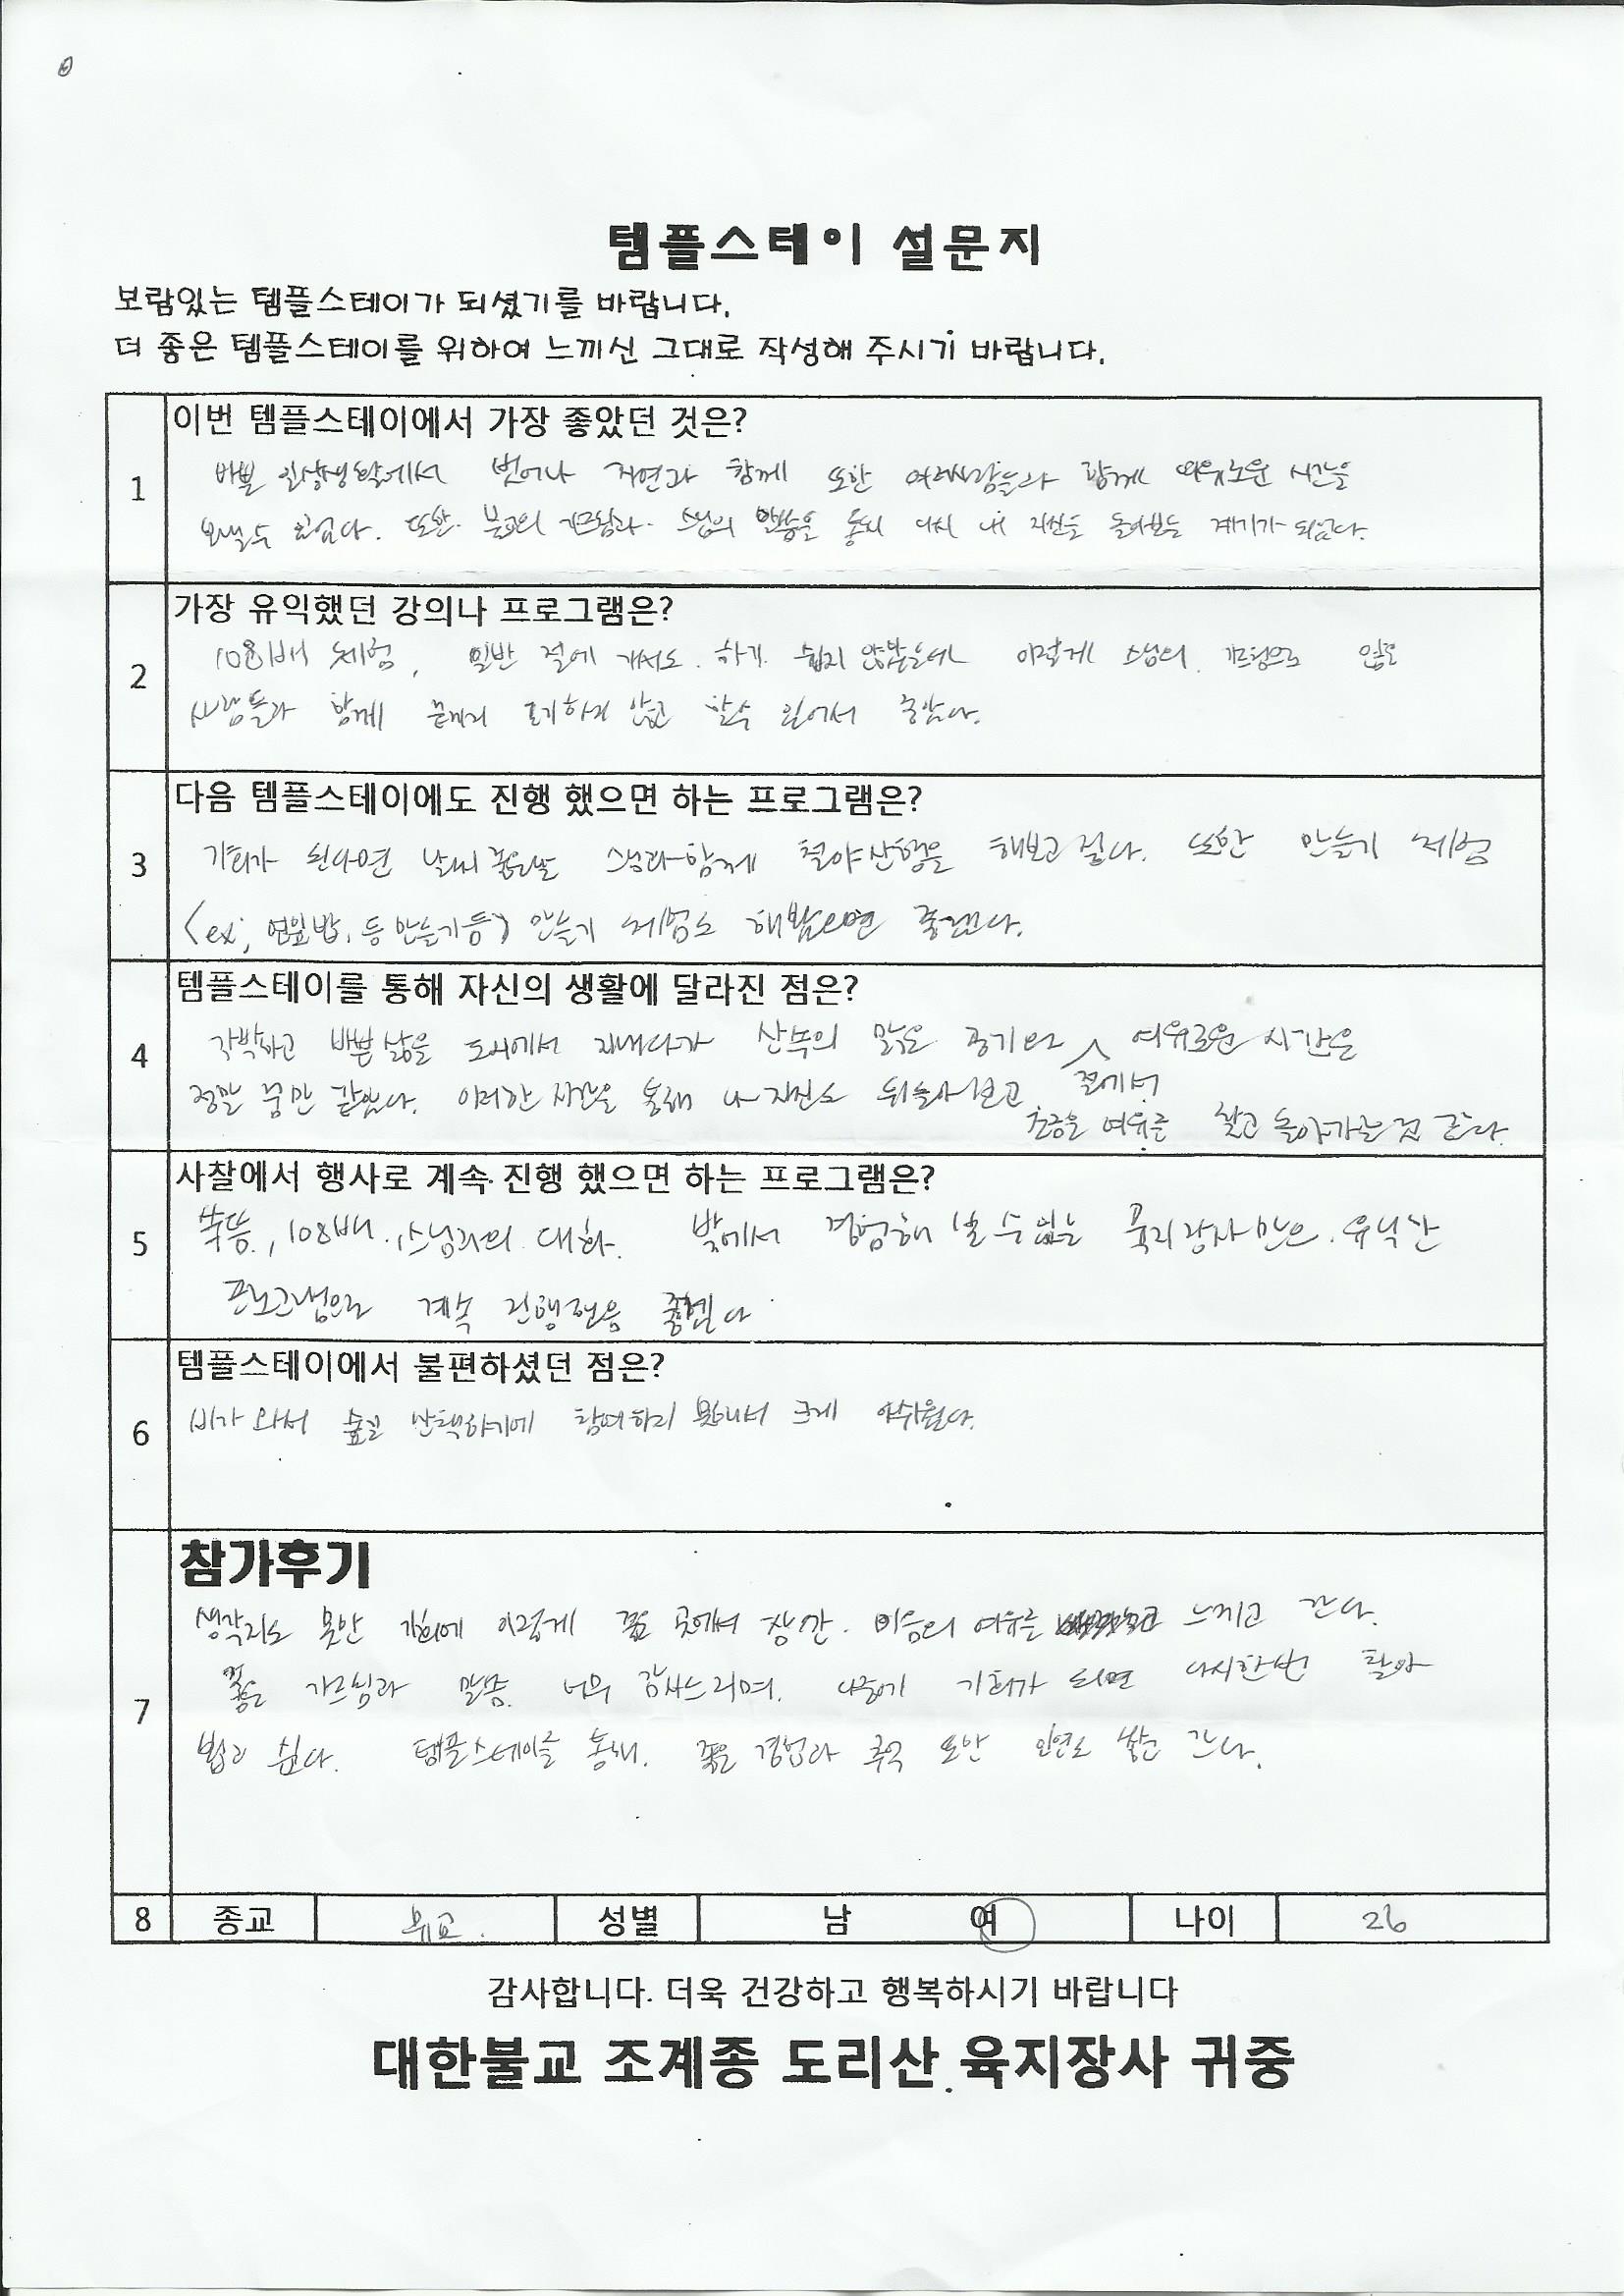 템플스테이 설문지
보람있는 템플스테이가 되셨기를 바랍니다.
더 좋은 템플스테이를 위하여 느끼신 그대로 작성해 주시기 바랍니다.
1 이번 템플스테이에서 가장 좋았던 것은?
바쁜 일상생활에서 벗어나 자연과 함께 또한 여러사람들과 함께 여유로운 시간을
보낼수 있었다. 또한 불교의 가르침과 스님의 말씀을 통해 다시 내 자신을 돌아보는 계기가 되었다.
2 가장 유익했던 강의나 프로그램은?
108배 체험, 일반 절에 가서도 하기 쉽지 않았을텐데 이렇게 스님의 가르침으로
사람들과 함께 끝까지 포기하지 않고 할수 있어서 좋았다.
3 다음 템플스테이에도 진행 했으면 하는 프로그램은?
기회가 된다면 날씨 좋은날 스님과 함께 철야산행을 해보고 싶다. 또한 만들기 체험
(ex; 연잎밥, 등 만들기 등) 만들기 체험도 해봤으면 좋겠다.
4 템플스테이를 통해 자신의 생활에 달라진 점은?
각박하고 바쁜 삶을 도시에서 지내다가 산속의 맑은 공기와 여유로운 시간은
절에서
정말 꿈만 같았다. 이러한 시간을 통해 나 자신도 뒤돌아보고
조금은 여유를 찾고 돌아가는 것 같다.
5 사찰에서 행사로 계속 진행 했으면 하는 프로그램은?
쑥뜸, 108배, 스님과의 대화. 밖에서 경험해 볼 수 없는 육지장사만의 유익한
프로그램으로 계속 진행했음 좋겠다
6 템플스테이에서 불편하셨던 점은?
비가 와서 숲길 산책하기에 참여하지 못해서 크게 아쉬웠다.
7 참가후기
생각지도 못한 기회에 이렇게 좋은 곳에서 잠깐 마음의 여유를 느끼고 간다.
좋은 가르침과 말씀 너무 감사드리며, 나중에 기회가 되면 다시한번 찾아
뵙고 싶다. 템플스테이를 통해 좋은 경험과 추억 또한 인연도 쌓고 간다.
8 종교 불교. 성별 남 여 나이 26
감사합니다. 더욱 건강하고 행복하시기 바랍니다
대한불교 조계종 도리산 육지장사 귀중